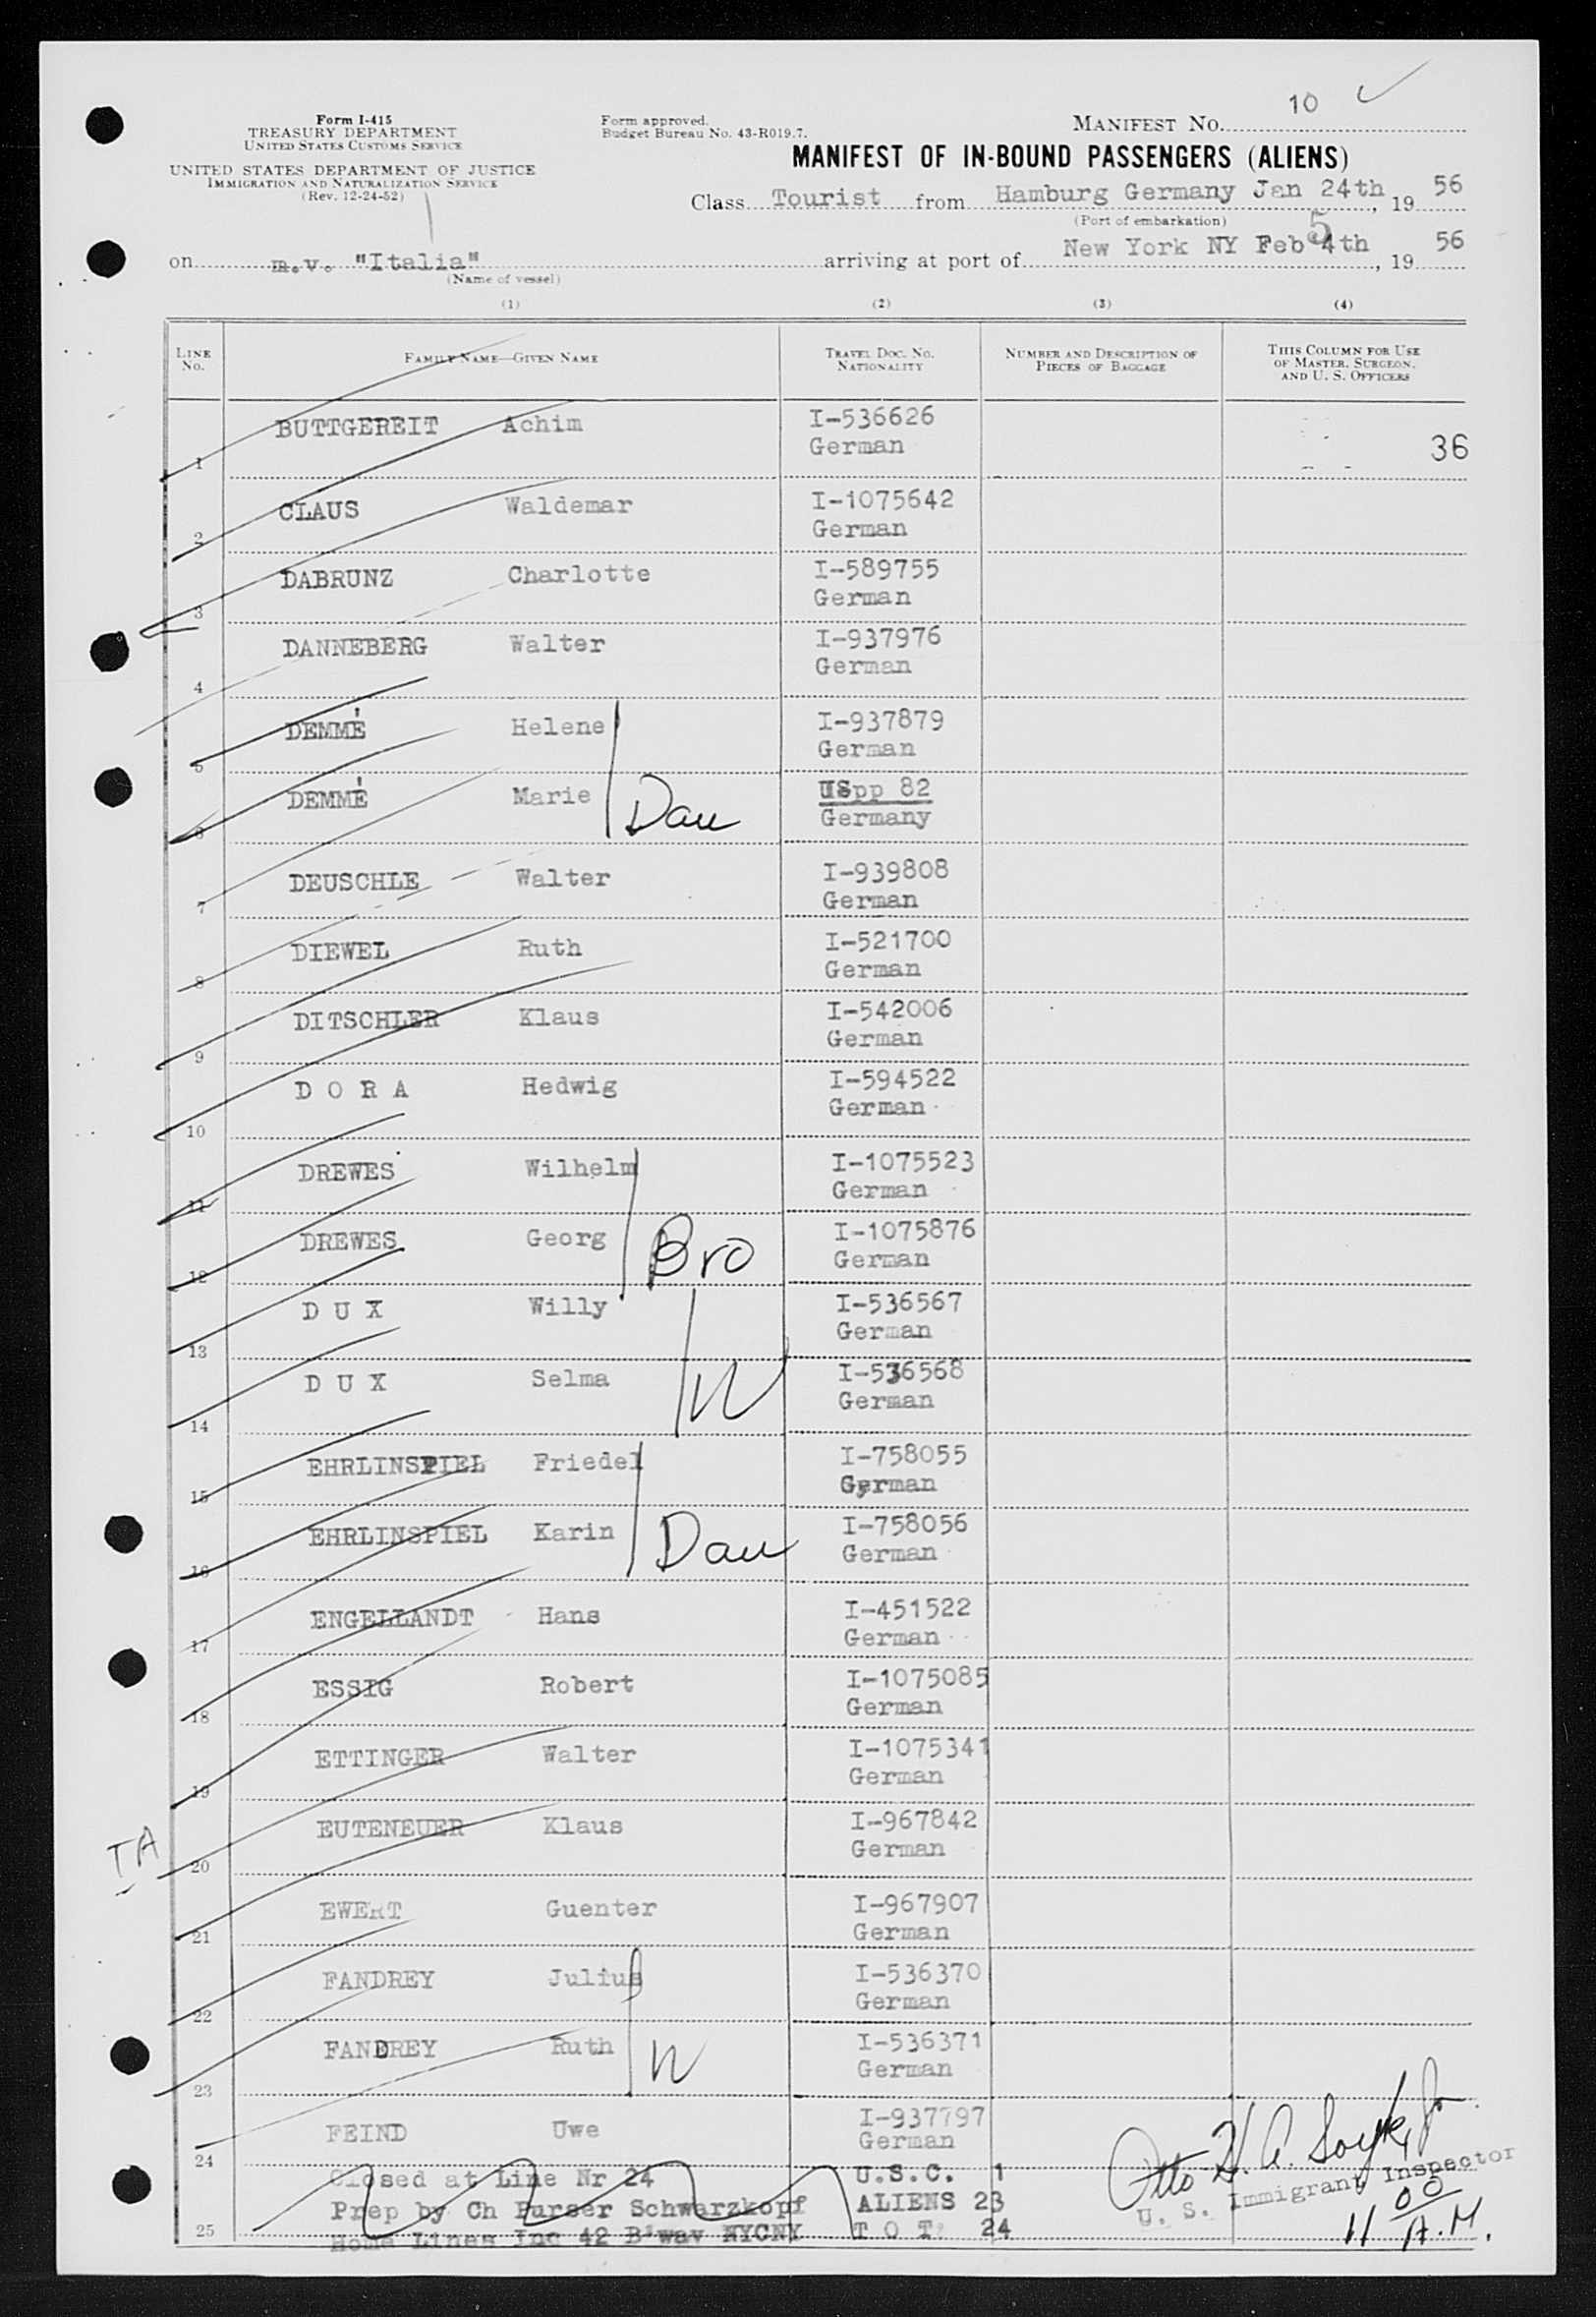 10 ✓
Form I-415
TREASURY DEPARTMENT
UNITED STATES CUSTOMS SERVICE
UNITED STATES DEPARTMENT OF JUSTICE
IMMIGRATION AND NATURALIZATION SERVICE
(Rev. 12-24-52)
Form approved.
Budget Bureau No. 43-R019.7.
MANIFEST NO.
MANIFEST OF IN-BOUND PASSENGERS (ALIENS)
Class Tourist from Hamburg Germany Jan 24th, 19 56
(Port of embarkation)
on m.v. "Italia" arriving at port of New York NY Feb 4th 5, 19 56
(Name of vessel)
(1) (2) (3) (4)
LINE No. FAMILY NAME—GIVEN NAME TRAVEL DOC. NO. NATIONALITY NUMBER AND DESCRIPTION OF PIECES OF BAGGAGE THIS COLUMN FOR USE OF MASTER, SURGEON, AND U. S. OFFICERS
1 BUTTGEREIT Achim I-536626 German 36
2 CLAUS Waldemar I-1075642 German
3 DABRUNZ Charlotte I-589755 German
4 DANNEBERG Walter I-937976 German
5 DEMMÉ Helene I-937879 German
6 DEMMÉ Marie Dau USpp 82 Germany
7 DEUSCHLE Walter I-939808 German
8 DIEWEL Ruth I-521700 German
9 DITSCHLER Klaus I-542006 German
10 D O R A Hedwig I-594522 German
11 DREWES Wilhelm I-1075523 German
12 DREWES Georg Bro I-1075876 German
13 D U X Willy I-536567 German
14 D U X Selma W I-536568 German
15 EHRLINSPIEL Friedel I-758055 German
16 EHRLINSPIEL Karin Dau I-758056 German
17 ENGELLANDT Hans I-451522 German
18 ESSIG Robert I-1075085 German
19 ETTINGER Walter I-1075341 German
TA
20 EUTENEUER Klaus I-967842 German
21 EWERT Guenter I-967907 German
22 FANDREY Julius I-536370 German
23 FANDREY Ruth W I-536371 German
24 FEIND Uwe I-937797 German
Closed at Line Nr 24 U.S.C. 1
Prep by Ch Purser Schwarzkopf ALIENS 23
25 Home Lines Inc 42 B'way NYCNY T O T 24
Otto H. A.
U. S. Immigrant Inspector
11 00 A.M.